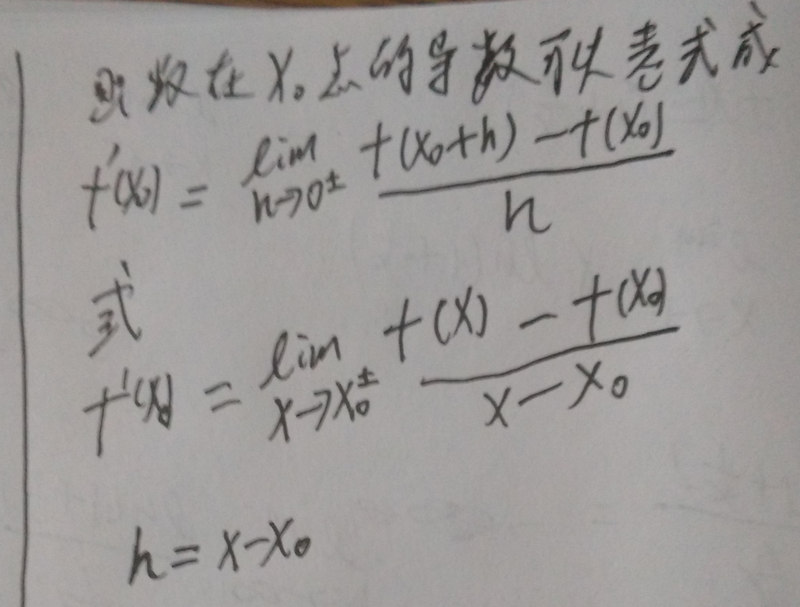 则数在 X₀ 点的导数可以表式成
f'(x₀) = lim h→0± f(x₀+h) - f(x₀) / h
或
f'(x₀) = lim x→x₀± f(x) - f(x₀) / x - x₀
h = x - x₀